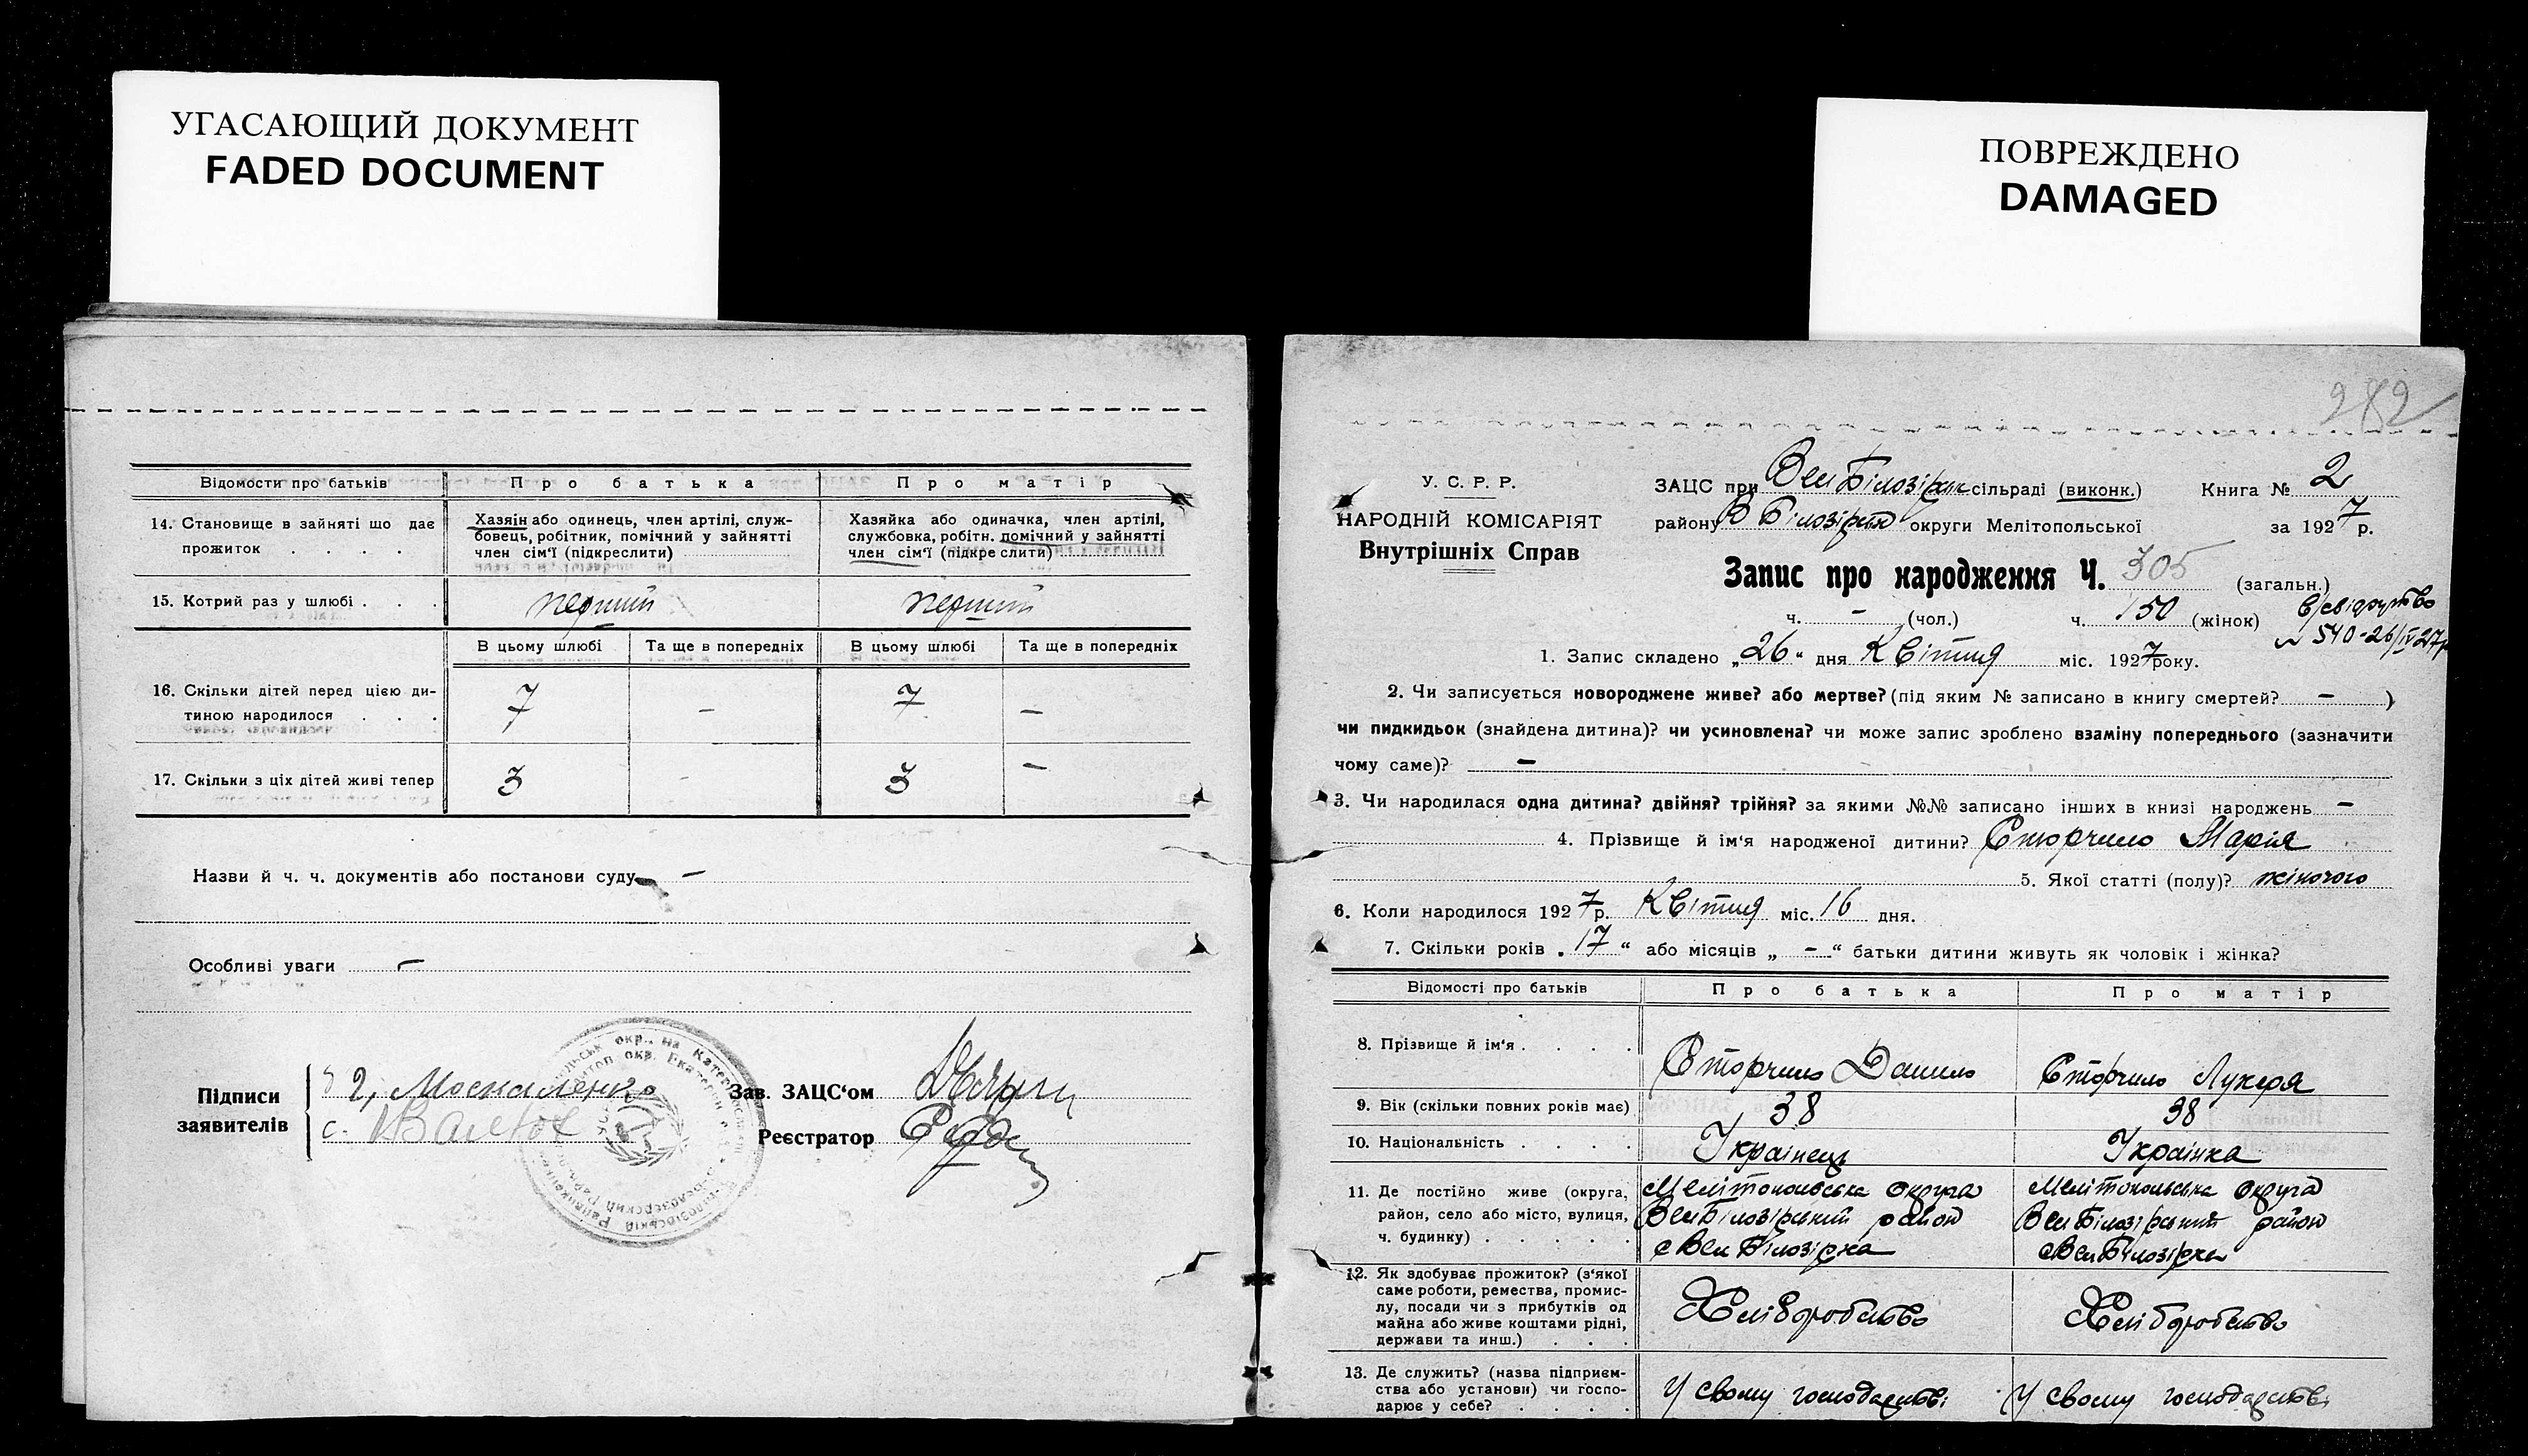 УГАСАЮЩИЙ ДОКУМЕНТ
FADED DOCUMENT
ПОВРЕЖДЕНО
DAMAGED
Відомости про батьків Про батька Про матір
14. Становище в зайняті що дає
прожиток . . . .
Хазяїн або одинець, член артілі, служ-
бовець, робітник, помічний у зайнятті
член сім'ї (підкреслити)
Хазяйка або одиначка, член артілі,
службовка, робітн. помічний у зайнятті
член сім'ї (підкреслити)
15. Котрий раз у шлюбі . . . перший перший
В цьому шлюбі Та ще в попередніх В цьому шлюбі Та ще в попередніх
16. Скільки дітей перед цією ди-
тиною народилося . . .
7 - 7 -
17. Скільки з ціх дітей живі тепер 3 - 3 -
Назви й ч. ч. документів або постанови суду -
Особливі уваги -
Підписи
заявителів
2, Москаленко
с.
Зав. ЗАЦС'ом
Реєстратор
282
У. С. Р. Р.
НАРОДНІЙ КОМІСАРІЯТ
Внутрішніх Справ
ЗАЦС при Вел Білозірск сільраді (виконк.) Книга № 2
району В Білозірськ округи Мелітопольської за 1927 р.
Запис про народження Ч. 305 (загальн.)
ч. - (чол.) ч. 150 (жінок)
540-26/IV 27р
1. Запис складено „26“ дня Квітня міс. 1927 року.
2. Чи записується новороджене живе? або мертве? (під яким № записано в книгу смертей? - )
чи пидкидьок (знайдена дитина)? чи усиновлена? чи може запис зроблено взаміну попереднього (зазначити
чому саме)? -
3. Чи народилася одна дитина? двійня? трійня? за якими №№ записано інших в книзі народжень -
4. Прізвище й ім'я народженої дитини? Сторчило Марія
5. Якої статті (полу)? жіночого
6. Коли народилося 1927 р. Квітня міс. 16 дня.
7. Скільки років „17“ або місяців „-“ батьки дитини живуть як чоловік і жінка?
Відомості про батьків Про батька Про матір
8. Прізвище й ім'я . . . . Сторчило Данило Сторчило Лукеря
9. Вік (скільки повних років має) 38 38
10. Національність . . . . Українець Українка
11. Де постійно живе (округа,
район, село або місто, вулиця,
ч. будинку) . . . . .
Мелітопольська округа
Вел Білозірський район
с Вел Білозірка
Мелітопольська округа
Вел Білозірський район
с Вел Білозірка
12. Як здобуває прожиток? (з'якої
саме роботи, ремества, промис-
лу, посади чи з прибутків од
майна або живе коштами рідні,
держави та инш.) . . .
Хліборобство
Хліборобство
13. Де служить? (назва підприєм-
ства або установи) чи госпо-
дарює у себе? . . . .
У свому господарстві
У свому господарстві